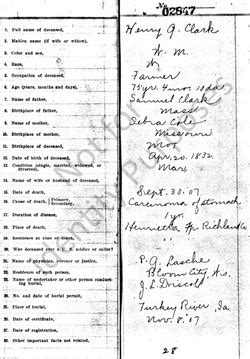 No. 02847
1. Full name of deceased, Henry G. Clark
2. Maiden name (if wife or widow),
3. Color and sex, W. M.
4. Race, W
5. Occupation of deceased, Farmer
6. Age (years, months and days), 75 yr. 4 mo. 10 da
7. Name of father, Samuel Clark
8. Birthplace of father, Mass
9. Name of mother, Cole
10. Birthplace of mother, Missouri
11. Birthplace of deceased,
12. Date of birth of deceased, Apr. 20. 1832.
13. Condition (single, married, widowed, or divorced), Mar
14. Name of wife or husband of deceased,
15. Date of death, Sept. 30. 07
16. Cause of death, Primary, Secondary, Carcinoma of stomach
17. Duration of disease, 1 yr.
18. Place of death, Henrietta Richland Co
19. Residence at time of death,
20. Was deceased ever a U. S. soldier or sailor?
21. Name of physician, coroner or justice, P. G. Lasche
22. Residence of such person, Bloom City
23. Name of undertaker or other person conducting burial, J. L. Driscoll
24. No. and date of burial permit,
25. Place of burial, Turkey River, Ia.
26. Date of certificate, Nov. 8. 07
27. Date of registration,
28. Other important facts not related.
28